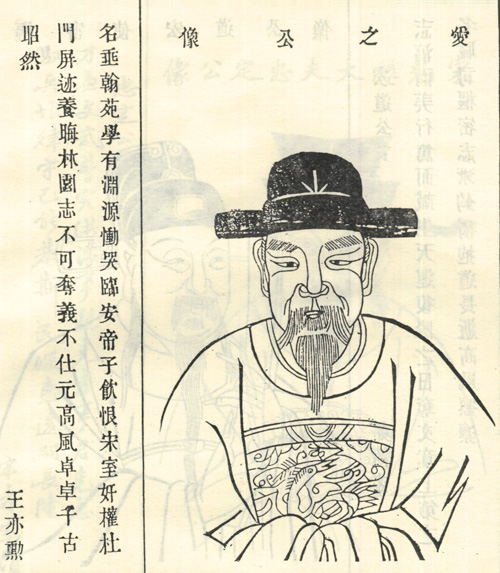 愛之公像
名垂翰苑學有淵源慟哭臨安帝子飲恨宋室奸權杜
門屏迹養晦林園志不可奪義不仕元高風卓卓千古
昭然
王亦勳